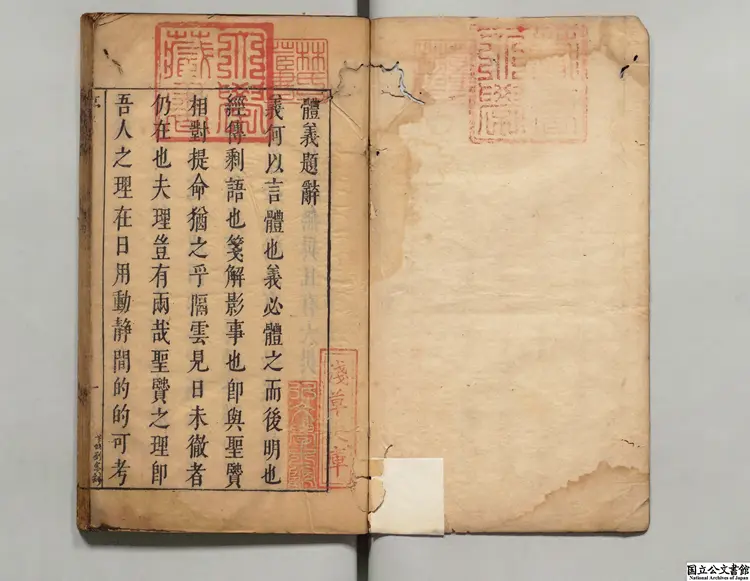 體義題辭
義何以言體也義必體之而後明也
經傳剩語也箋解影事也即與聖贒
相對提命猶之乎隔雲見日未徹者
仍在也夫理豈有兩哉聖贒之理即
吾人之理在日用動靜間的的可考
淺草文庫
国立公文書館
National Archives of Japan